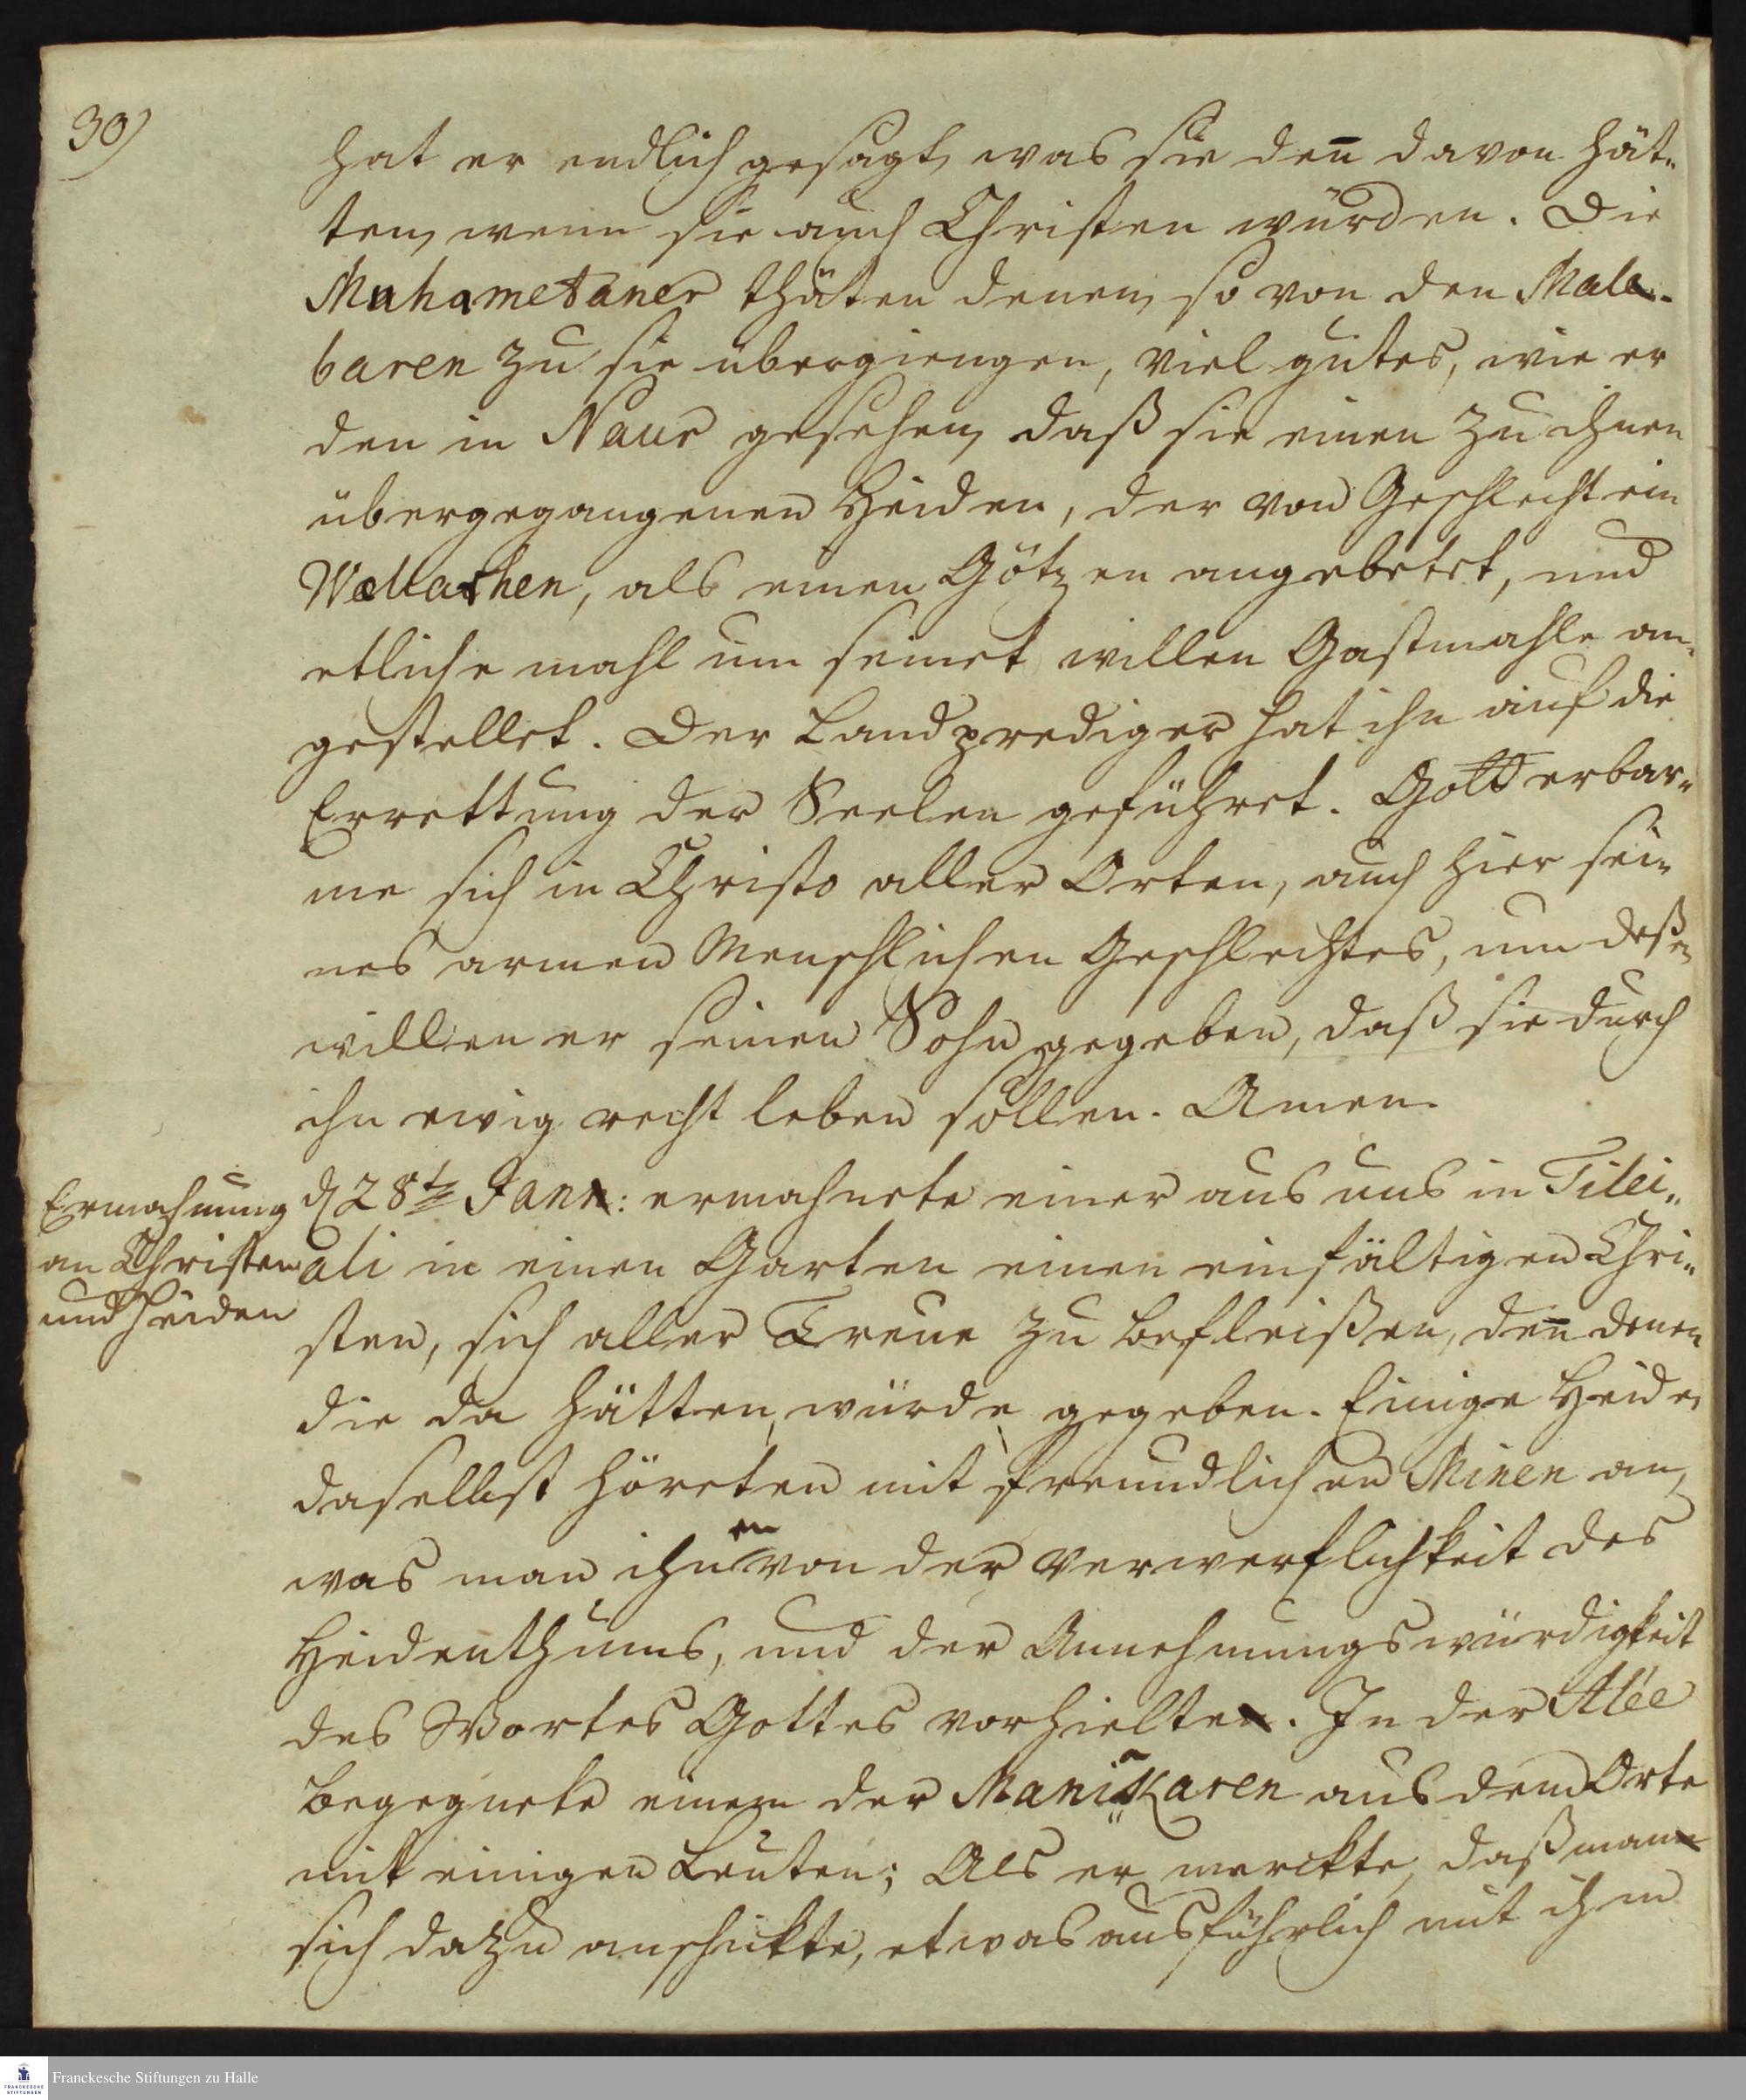 30)
hat er endlich gesagt, was sie deñ davon hät„
ten, wenn sie auch Christen würden. Die
Muhametaner thäten denen, so von den Mala-
baren zu sie übergiengen, viel gutes, wie er
den in Naur gesehen, daß sie einen zu ihnen
übergegangenen Heiden, der von Geschlecht ein
Wallathen, als einen Götzen angebetet, und
etliche mahl um seinet willen Gastmahle an„
gestellet. Der Landprediger hat ihn auf die
Errettung der Seelen geführet. Gott erbar„
me sich in Christo aller Orten, auch hier sei„
nes armen Menschlichen Geschlechtes, um deßen
willen er seinen Sohn gegeben, daß sie durch
ihn ewig recht leben sollen. Amen.
Ermahnung
an Christen
und Heiden
d 28t Jann: ermahnete einer aus uns in Tilei„
ali in einen Garten einen einfältigen Chri„
sten, sich aller Treue zu befleißen, deñ denen
die da hätten, würde gegeben. Einige Heiden
daselbst höreten mit freundlichen Minen an,
was man ihnen von der Verwerflichkeit des
Heidenthums, und der Annehmungswürdigkeit
des Wortes Gottes vorhielte. In der Alée
begegnete einem der Maniakaren aus dem Orte
mit einigen Leuten; Als er merckte, daß man
sich dazu anschickte, etwas ausführlich mit ihm
FRANCKESCHE
STIFTUNGEN
Franckesche Stiftungen zu Halle